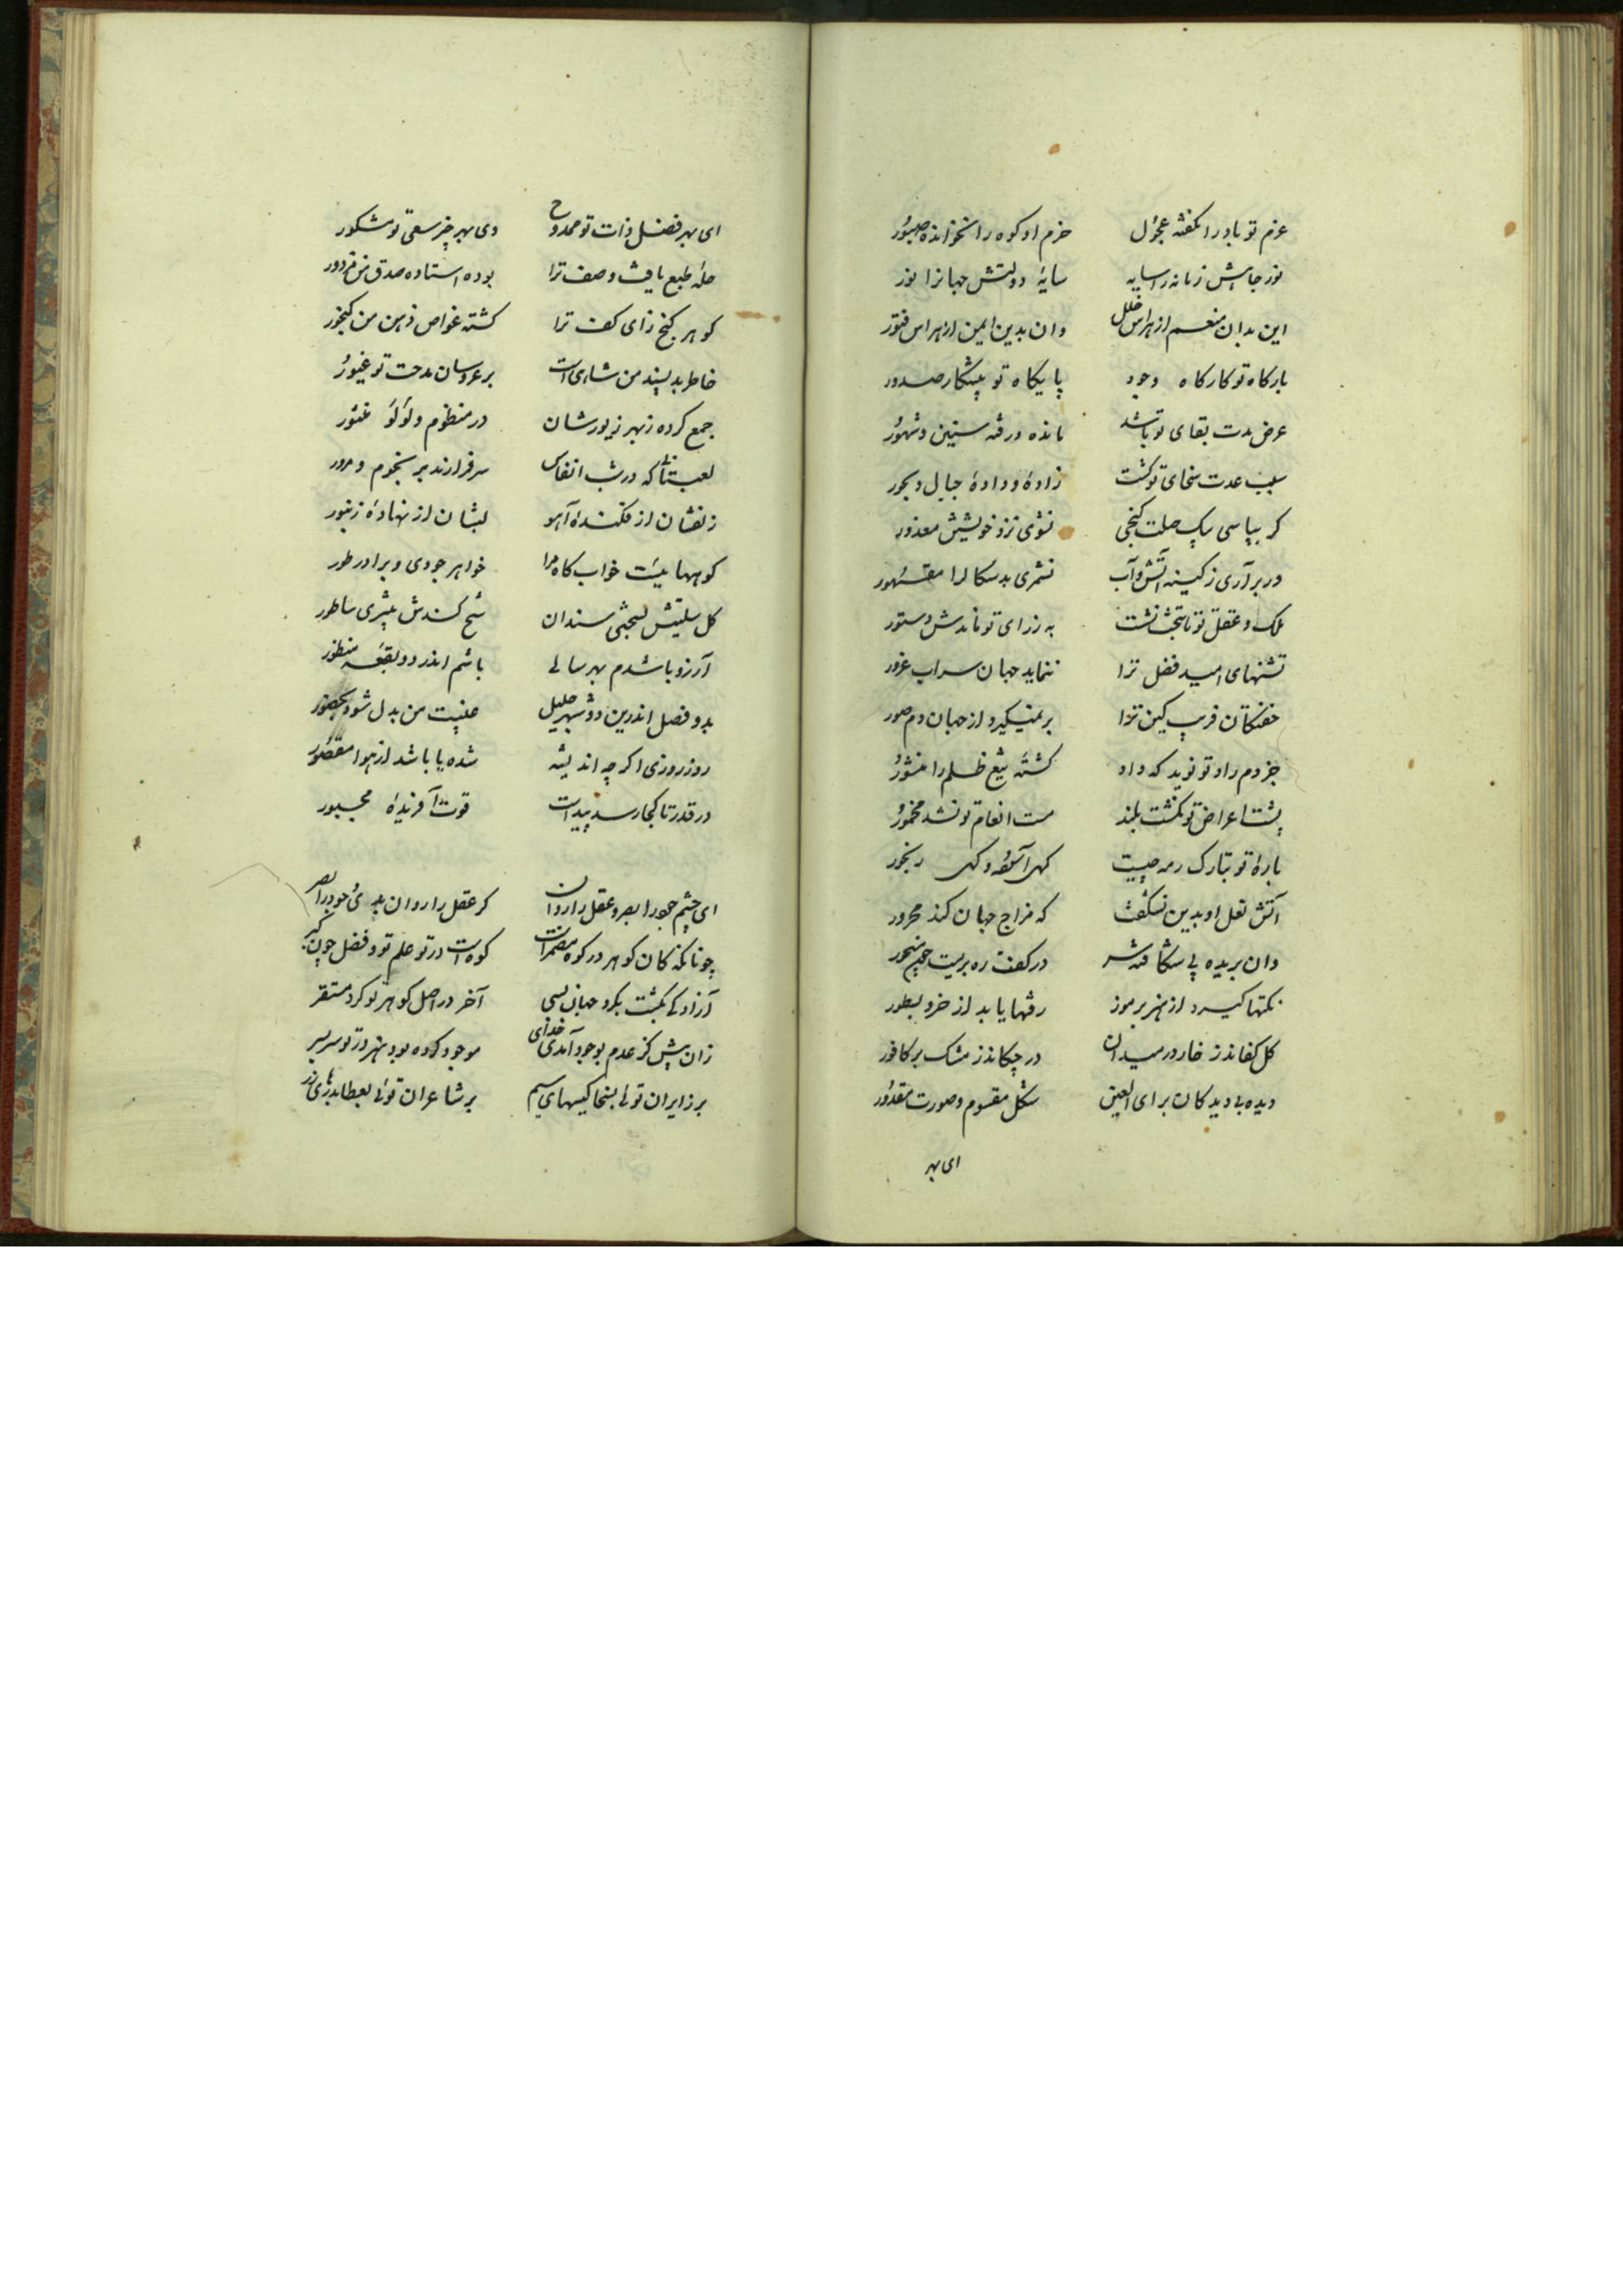 عزم تو باد را نگفته عجول حزم او کوه را نخوانده صبور
نور جاهش زمانه را سایه سایۀ دولتش جهانرا نور
این بدان منعم از هراس خلل وان بدین ایمن از هراس فتور
بارکاه تو کارکاه وجود پایکاه تو پیشکار صدور
عرض مدت بقای تو باشد مانده در قه سنین و شهور
سبب عدت سخای تو گشت زادۀ و دادۀ جبال و بحور
کر بپاسی یک صلت کنجی نشوی نزد خویشتن معذور
در برآری ز کینه آتش و آب نشمری بدسکال را مقهور
ملک و عقل تو تا بتخت نشست به ز رای تو نامدش دستور
تشنهای امید فضل ترا ننماید جهان سراب غرور
خفتکان فریب کین ترا بر نمیکیرد از جهان دم صور
جز دم راد تو نوید که داد کشتۀ تیغ ظلم را منشور
پشت اعراض تو نکشت بلند مست انعام تو نشد مخمور
بارۀ تو تبارک رمه چیست که آسوده و که رنجور
آتش نعل او بدین نسکفت که مزاج جهان کند محرور
وان بریده پی شکافته سر در کفت ره بریست
نکتها کیرد از هنر برموز رقمها یابد از خرد بسطور
کل کفاند ز خار در میدان در چکاند ز مشک بر کافور
دیده بی دیدکان برای العین شکل مقسوم و صورت مقدور
ای بهر
ای بهر فضل ذات تو ممدوح وی بهر خیر سعی تو مشکور
حلۀ طبع باف وصف ترا بوده استاده صدق من مزدور
کوهر کنج زای کف ترا کشته غواص ذهن من کنجور
خاطر بدپسند من شادی است بر عروسان مدحت تو غیور
جمع کرده ز بهر زیورشان در منظوم و لؤلؤ منثور
لعبتانی که در شب انفاس سرفرازند بر نجوم و بدور
زلفشان از فکندۀ آهو لبشان از نهادۀ زنبور
کوههائیست خواب کاه مرا خواهر جودی و برادر طور
کل سلیتش بسختی سندان شخ کندش بتیزی ساطور
آرزو باشدم بهر سالی باشم اندر دو بقعه منظور
بدو فصل اندرین دو شهر جلیل غیبت من بدل شود بحضور
روز روزی اکر چه اندیشه شده یا باشد از هوا مقصور
در قدر تا کجا رسد پیداست قوت آفریدۀ مجبور
ای چشم جود را بصر و عقل را روان کر عقل را روان بدی و جود را بصر
چونانکه کان کوهر در کوه مضمر است کوه است در تو علم تو و فضل چون کهر
آزادگی بکشت بکرد جهان بسی آخر در اصل کوهر تو کرد مستقر
زان پیش کز عدم بوجود آمدی خدای موجود کرده بود هنر در تو سربسر
بر زایران توئی بسخا کیسهای سیم بر شاعران توئی بعطا بدرهای زر